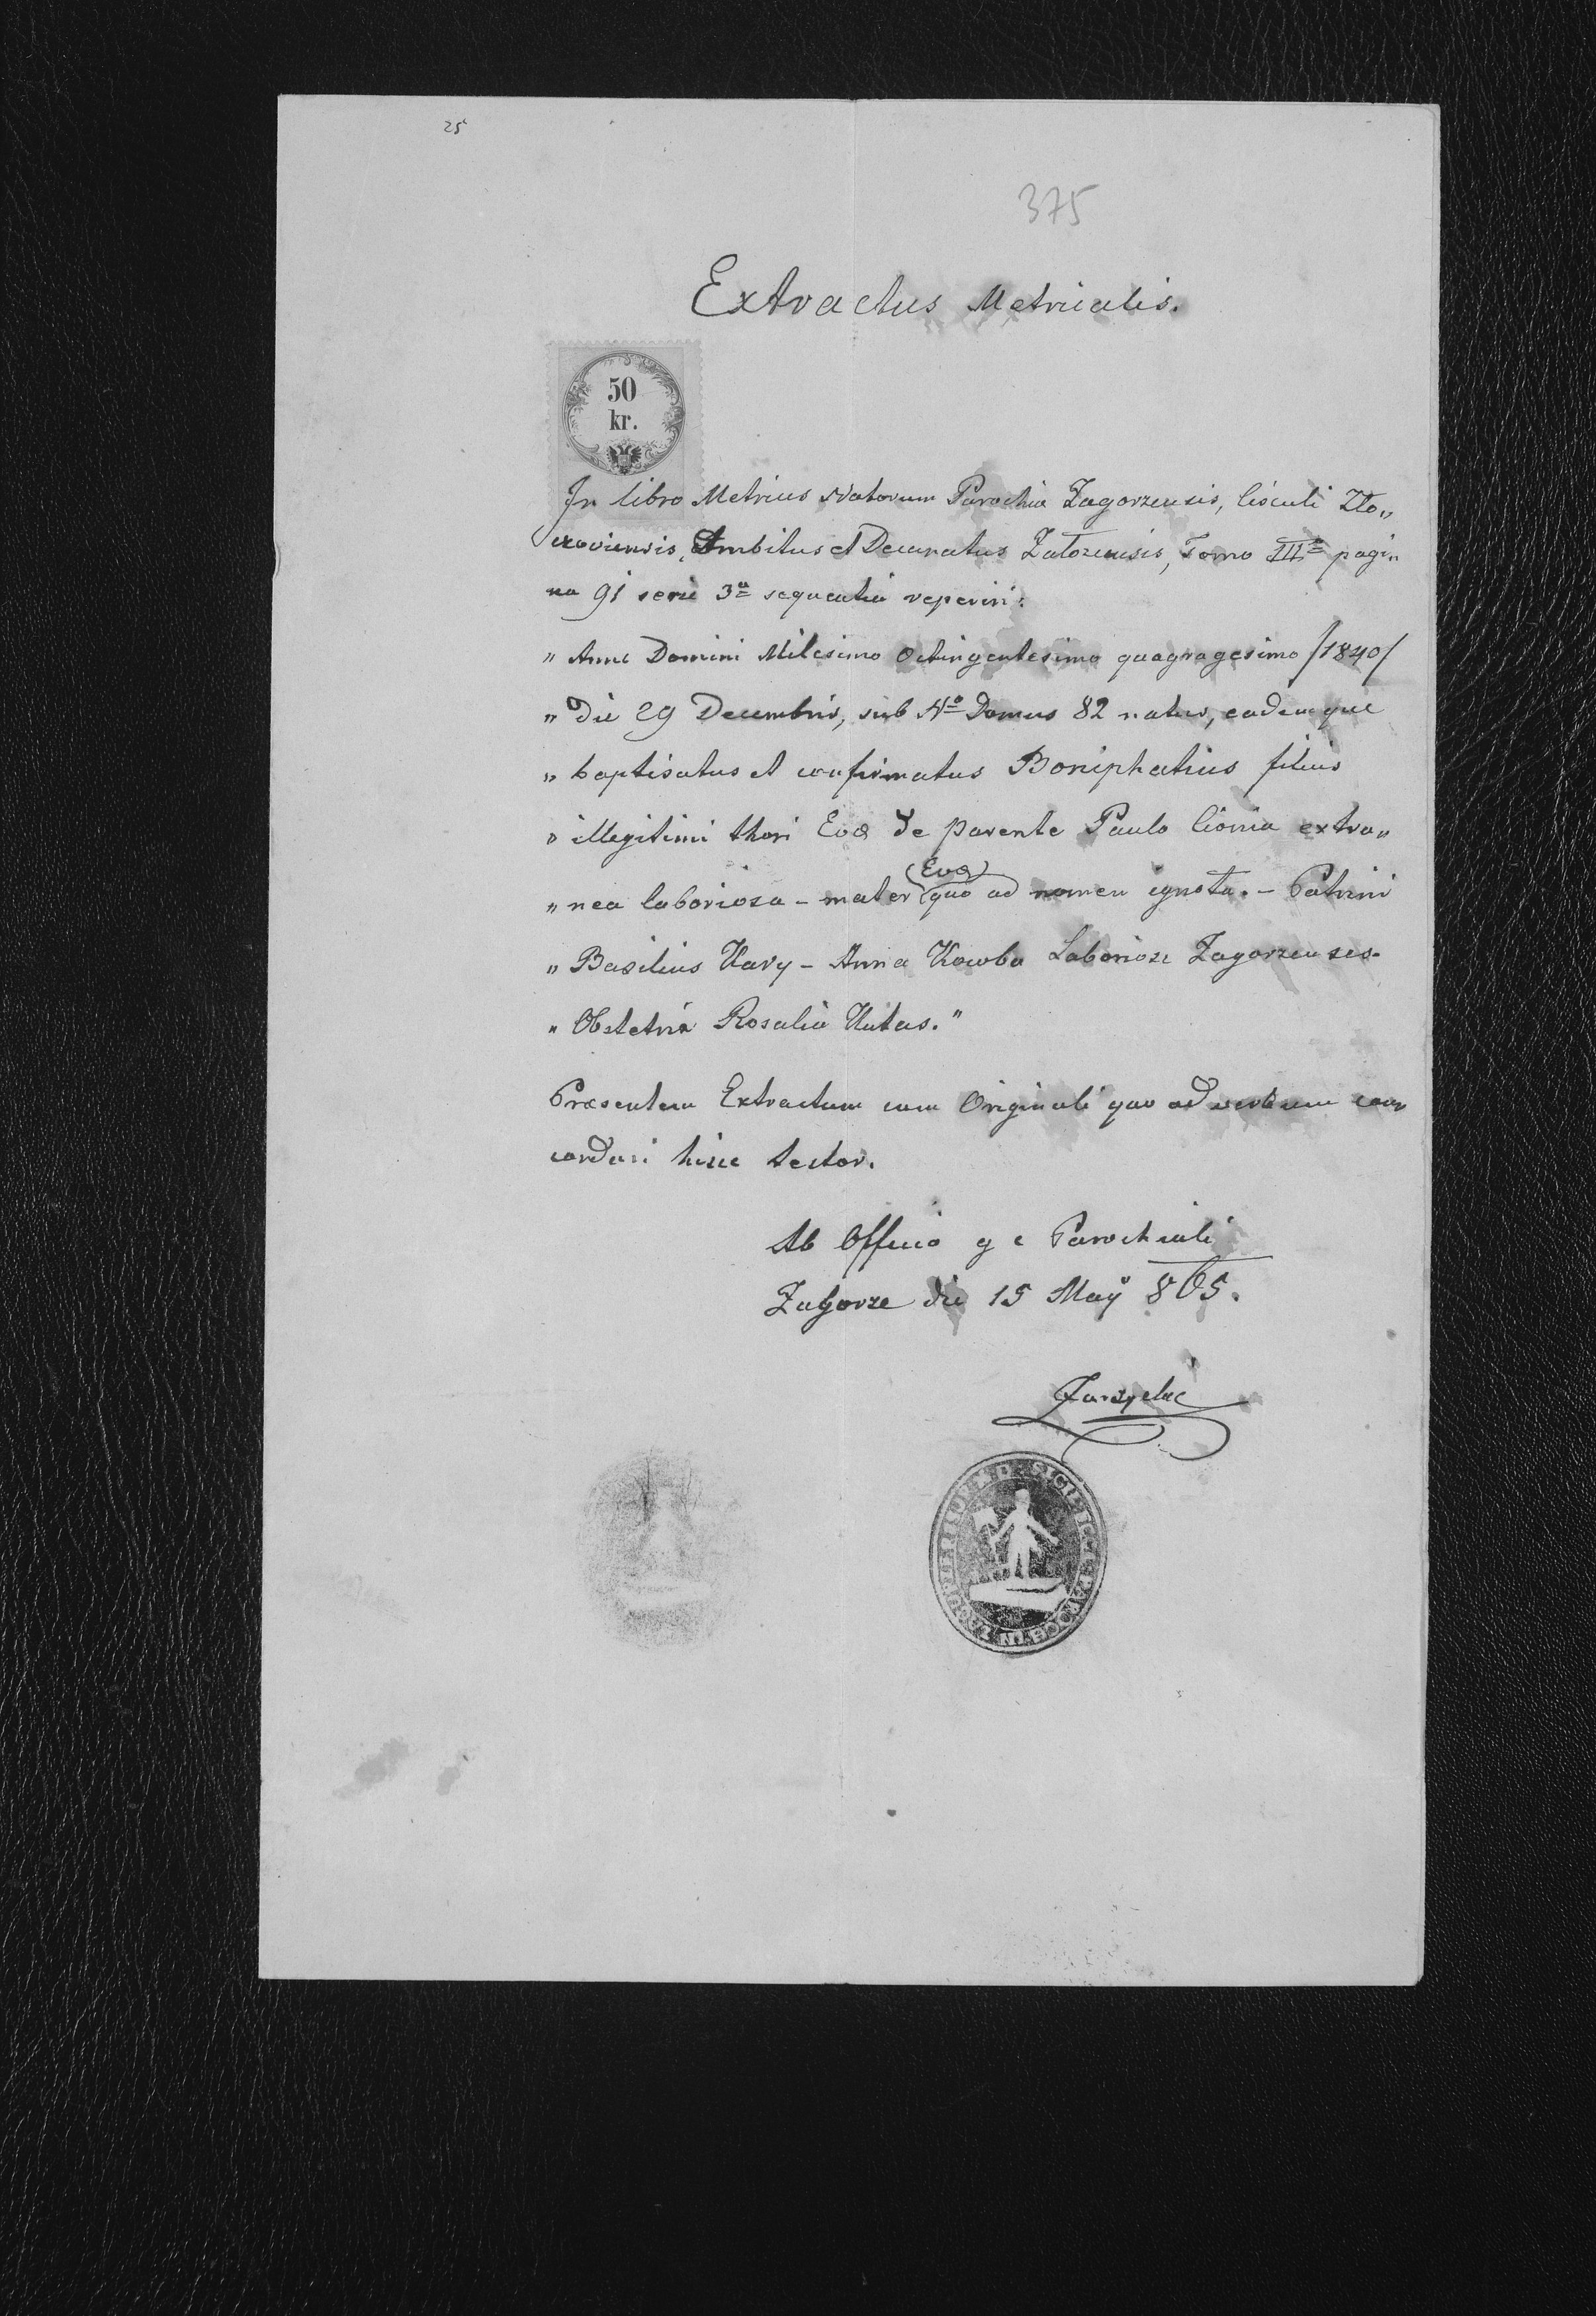 25
375
Extractus Metricalis.
50
kr.
In libro Metrices Natorum Parochiæ Zagorzensis, Circuli Zło„
czoviensis, Ambitus et Decanatus Załozensis, Tomo III o pagi„
na 91 serie 3a sequentia reperiri:
„ Anno Domini Milesimo Octingentesimo quagragesimo /1840/
„ die 29 Decembris, sub No Domus 82 natus, eademque
„ baptisatus et confirmatus Boniphatius filius
„ illegitimi thori Evæ de parente Paulo Cionia extra„
(Evæ)
„ nea laboriosa – mater quo ad nomen ignota. – Patrini
„ Basilius – Anna Laboriosi Zagorzenses.
„ Obstetrix Rosalia Hutas."
Præsentem Extractum cum Originali quo ad verbum con
cordari hisce testor.
Ab Officio g c Parochiali
Zagorze die 15 Maÿ 865.
SIGIL